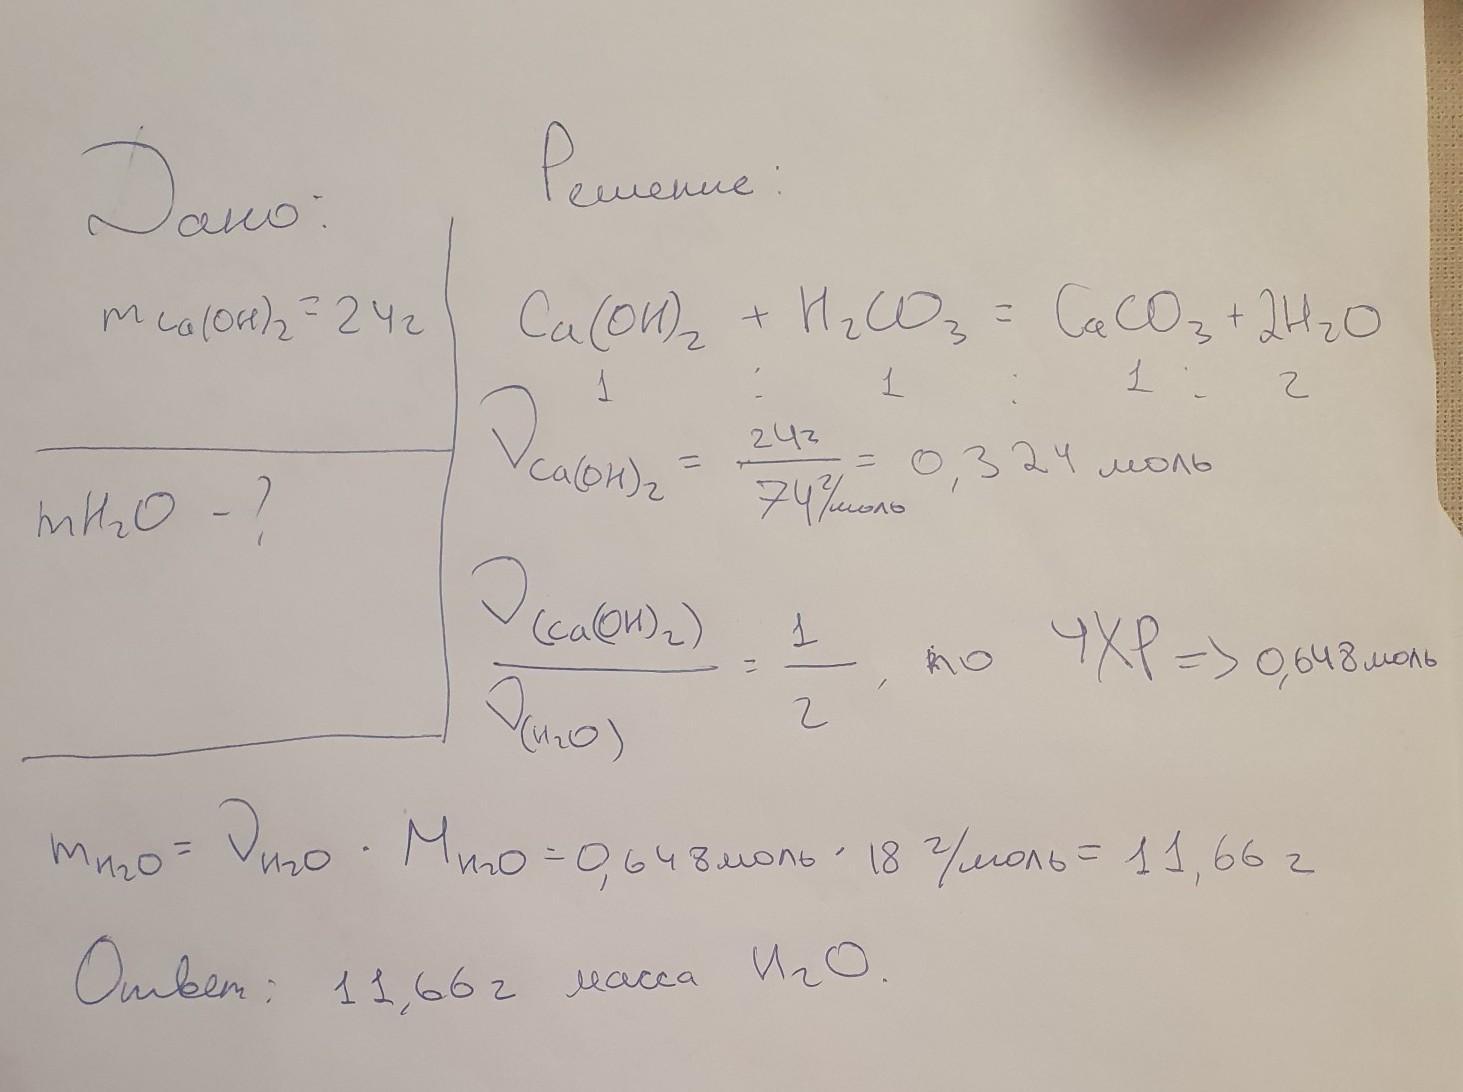 Дано:
m Ca(OH)₂ = 24г
mH₂O - ?
Решение:
Ca(OH)₂ + H₂CO₃ = CaCO₃ + 2H₂O
1 : 1 : 1 : 2
ν Ca(OH)₂ = 24г / 74 г/моль = 0,324 моль
ν(Ca(OH)₂) / ν(H₂O) = 1 / 2, по УХР => 0,648 моль
m H₂O = ν H₂O · M H₂O = 0,648 моль · 18 г/моль = 11,66 г
Ответ: 11,66 г масса H₂O.